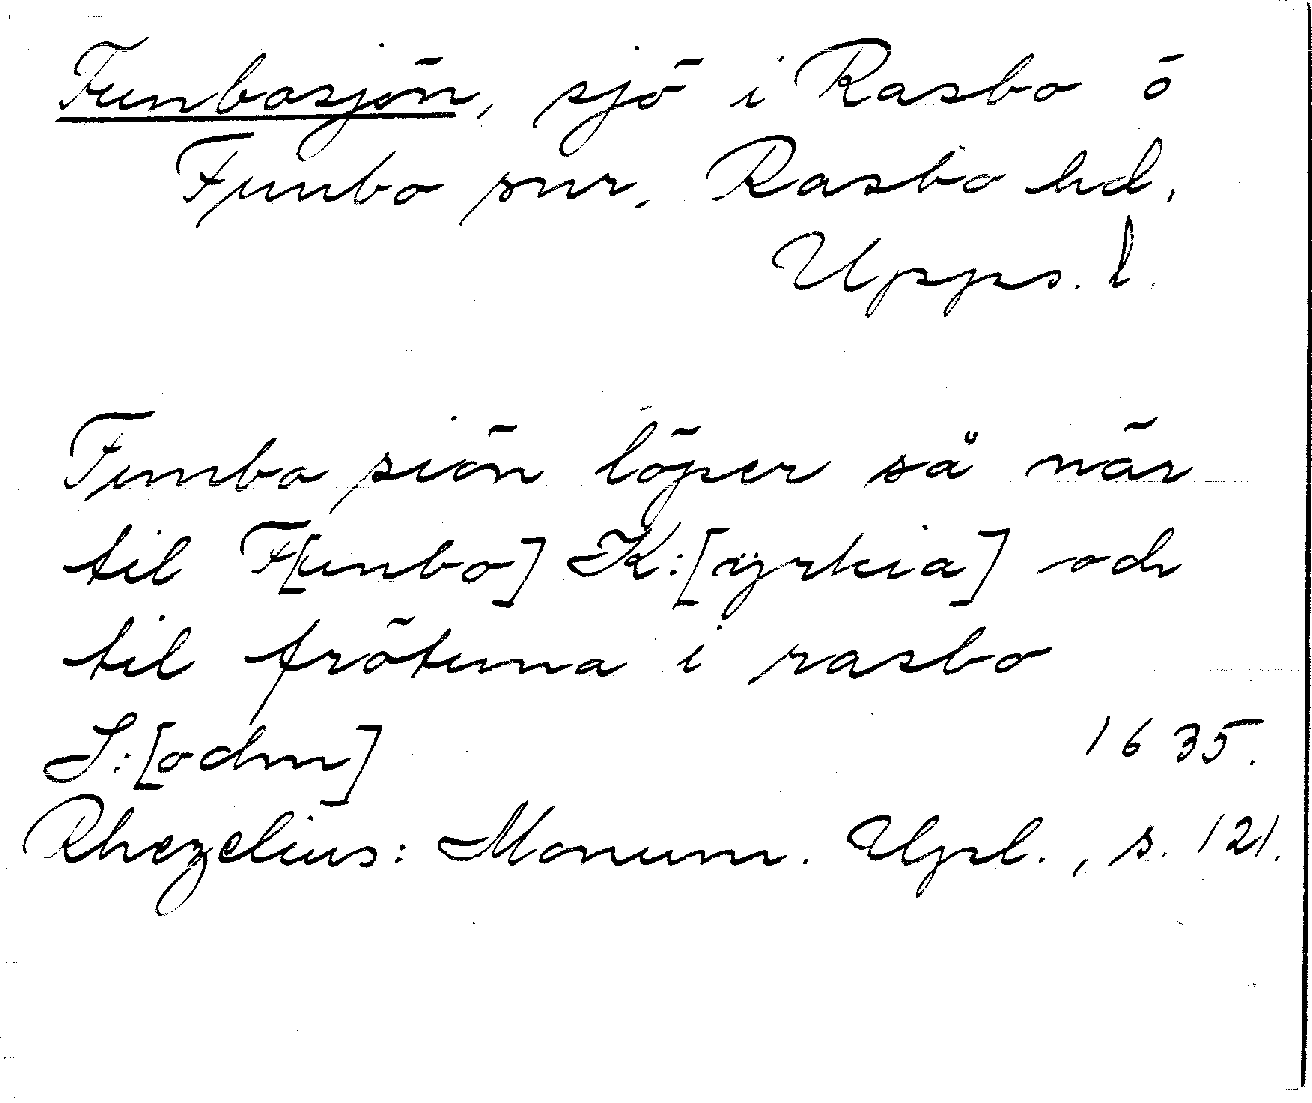 Funbosjön, sjö i Rasbo o
Funbo snr, Rasbo hd,
Upps. l.
Funbo siön löper så när
til F[unbo] K:[yrkia] och
til frötuna i rasbo
S:[ochn] 1635.
Rhezelius: Monum. Upl., s. 121.